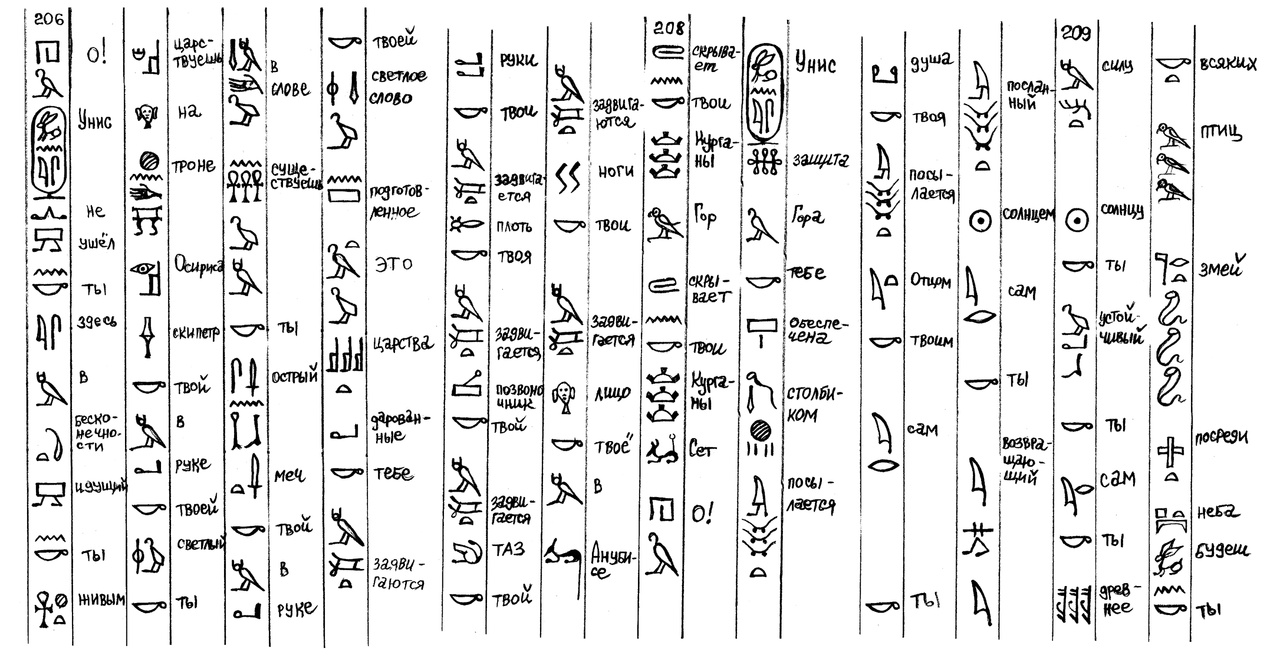 206
О!
Унис
не
ушёл
ты
здесь
в
беско-
нечно-
сти
идущий
ты
живым
царс-
твуешь
на
троне
Осириса
скипетр
твой
в
руке
твоей
светлый
ты
в
слове
суще-
ствуешь
ты
острый
меч
твой
в
руке
твоей
светлое
слово
подготов-
ленное
это
царства
дарован-
ные
тебе
задви-
гаются
руки
твои
задвига-
ется
плоть
твоя
задви-
гается
позвоно
чник
твой
задви-
гается
таз
твой
задвига-
ются
ноги
твои
задви-
гается
лицо
твоё
в
Ануби-
се
208
скрыва-
ет
твои
Курга-
ны
Гор
скры-
вает
твои
Курга-
ны
Сет
О!
Унис
защита
Гора
тебе
обеспе-
чена
столби-
ком
посы-
лается
душа
твоя
посы-
лается
Отцом
твоим
сам
ты
послан-
ный
солнцем
сам
ты
возвра-
щаю-
щий
209
силу
солнцу
ты
устой-
чивый
ты
сам
ты
древ-
нее
всяких
птиц
змей
посреди
неба
будеш
ты